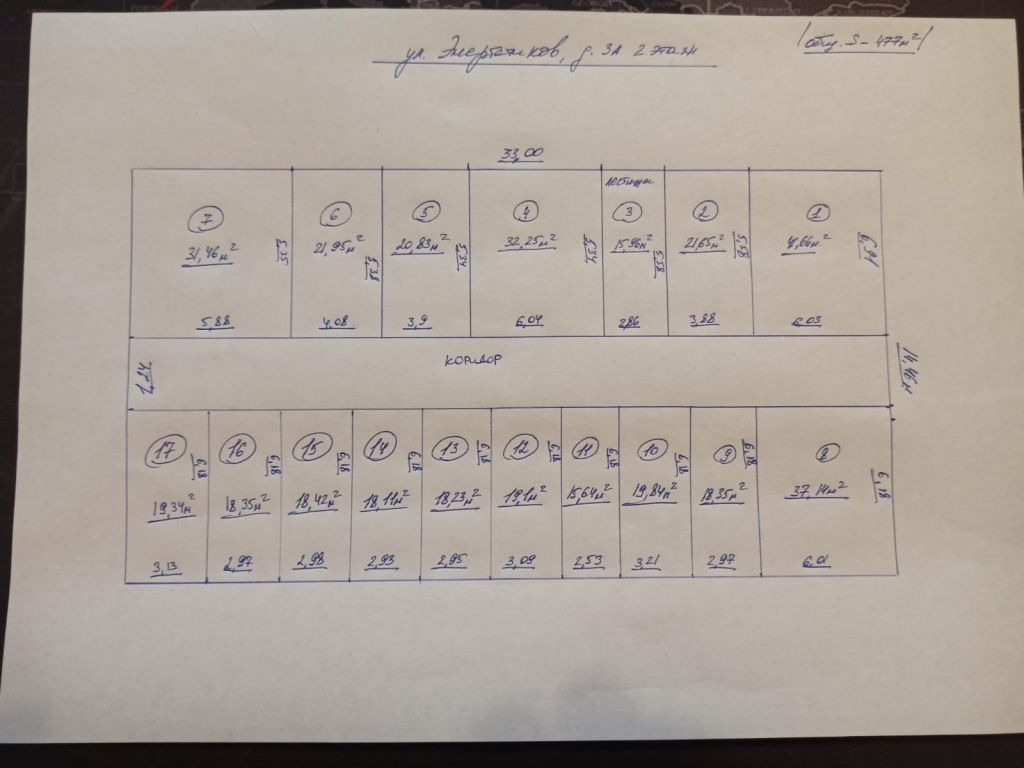 ул. Энергетиков, д. 3А 2 этаж
/общ. S - 477м²/
33,00
7
31,46м²
5,35
5,88
6
21,95м²
5,38
4,08
5
20,83м²
5,34
3,9
4
32,25м²
5,34
6,04
лестница
3
15,96м²
5,58
2,86
2
21,65м²
5,58
3,88
1
6,03
1,24
коридор
14,46м
17
19,34м²
6,18
3,13
16
18,35м²
6,18
2,97
15
18,42м²
6,18
2,98
14
18,11м²
6,18
2,93
13
18,23м²
6,18
2,95
12
19,1м²
6,18
3,09
11
15,64м²
6,18
2,53
10
19,84м²
6,18
3,21
9
18,35м²
6,18
2,97
8
37,14м²
6,18
6,01